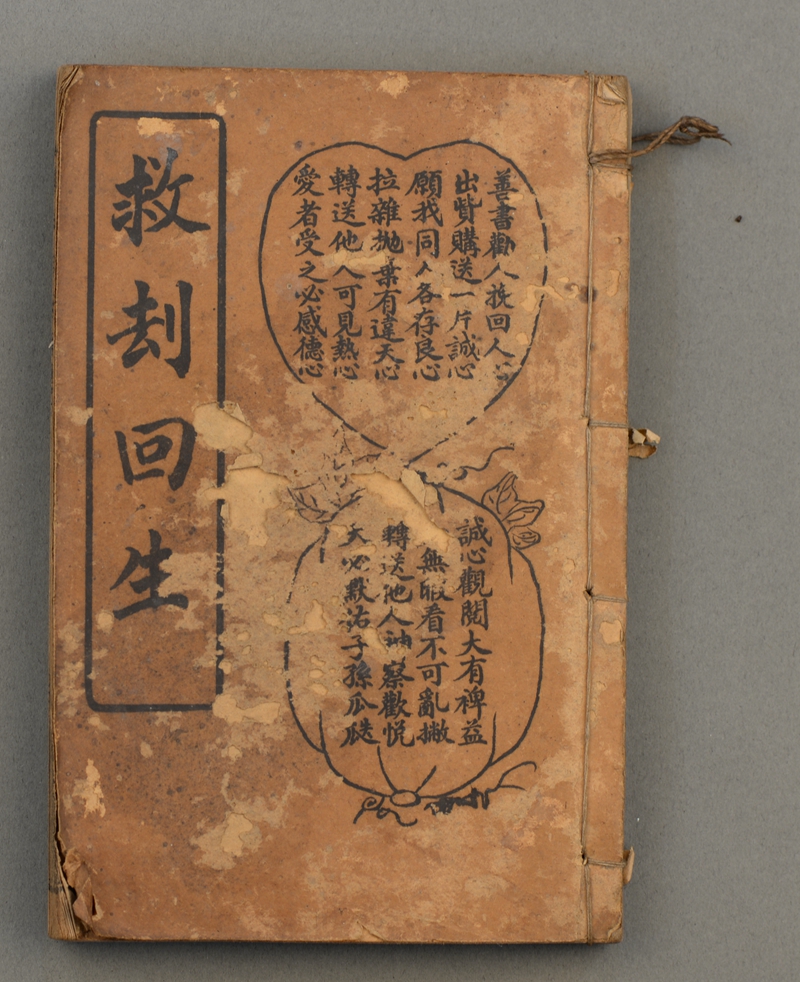 善書勸人挽回人心
出貲購送一片誠心
願我同人各存良心
拉雜抛棄有違天心
轉送他人可見熱心
愛者受之必感德心
誠心觀閱大有裨益
無暇看不可亂撇
轉送他人神察歡悅
天必默祐子孫瓜瓞
救刦回生